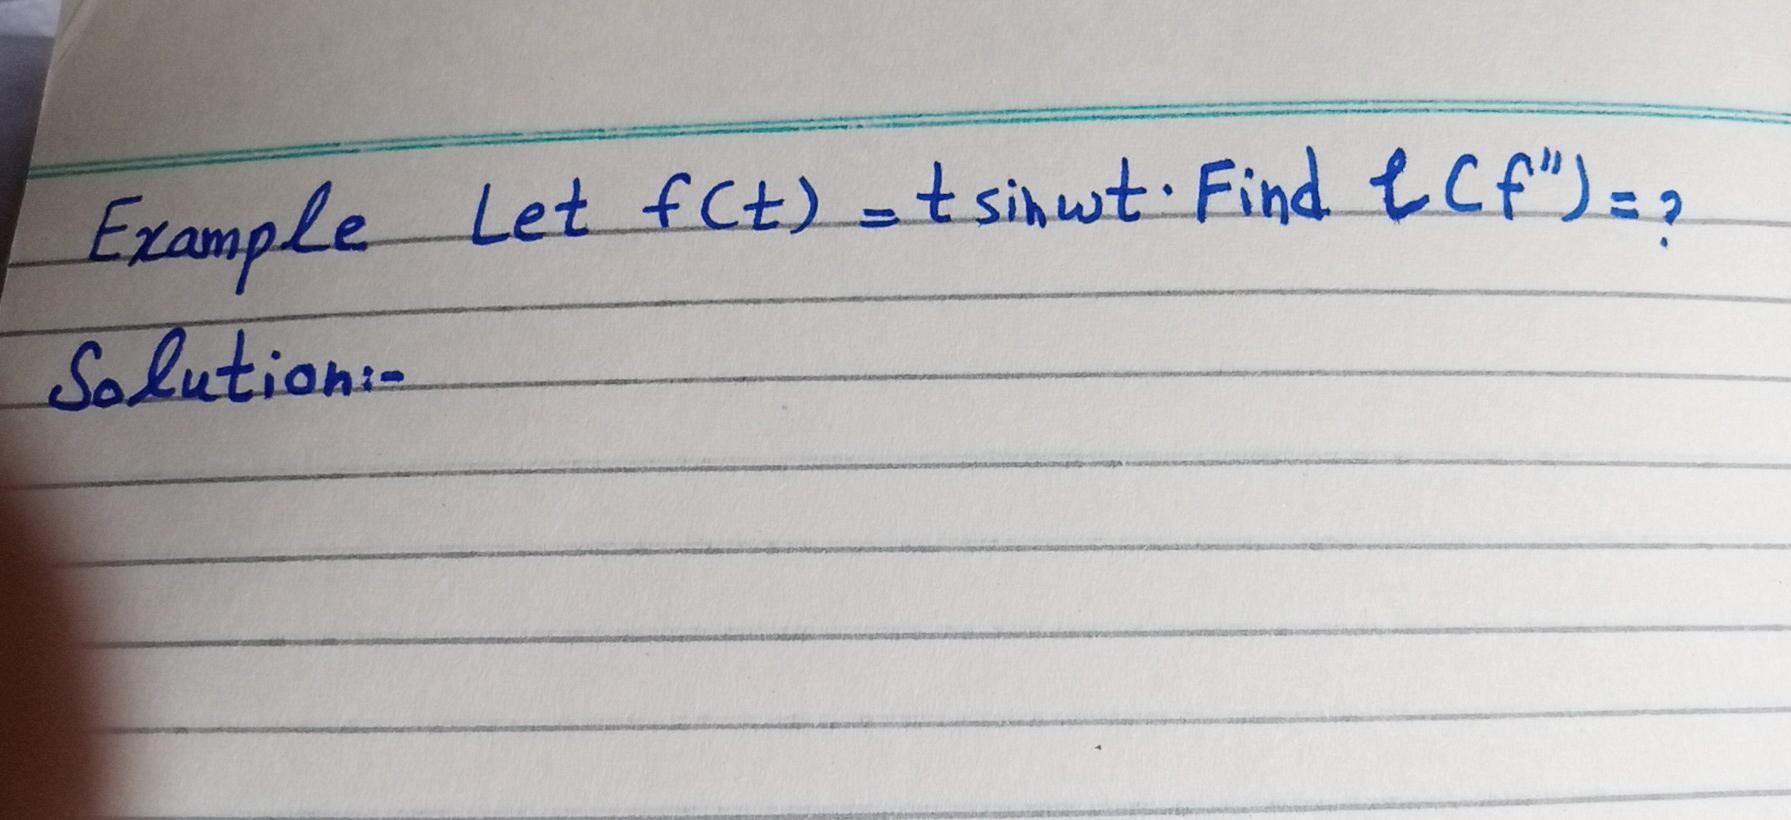 Example Let f(t) = t sinωt. Find ℒ(f")=?
Solution:-